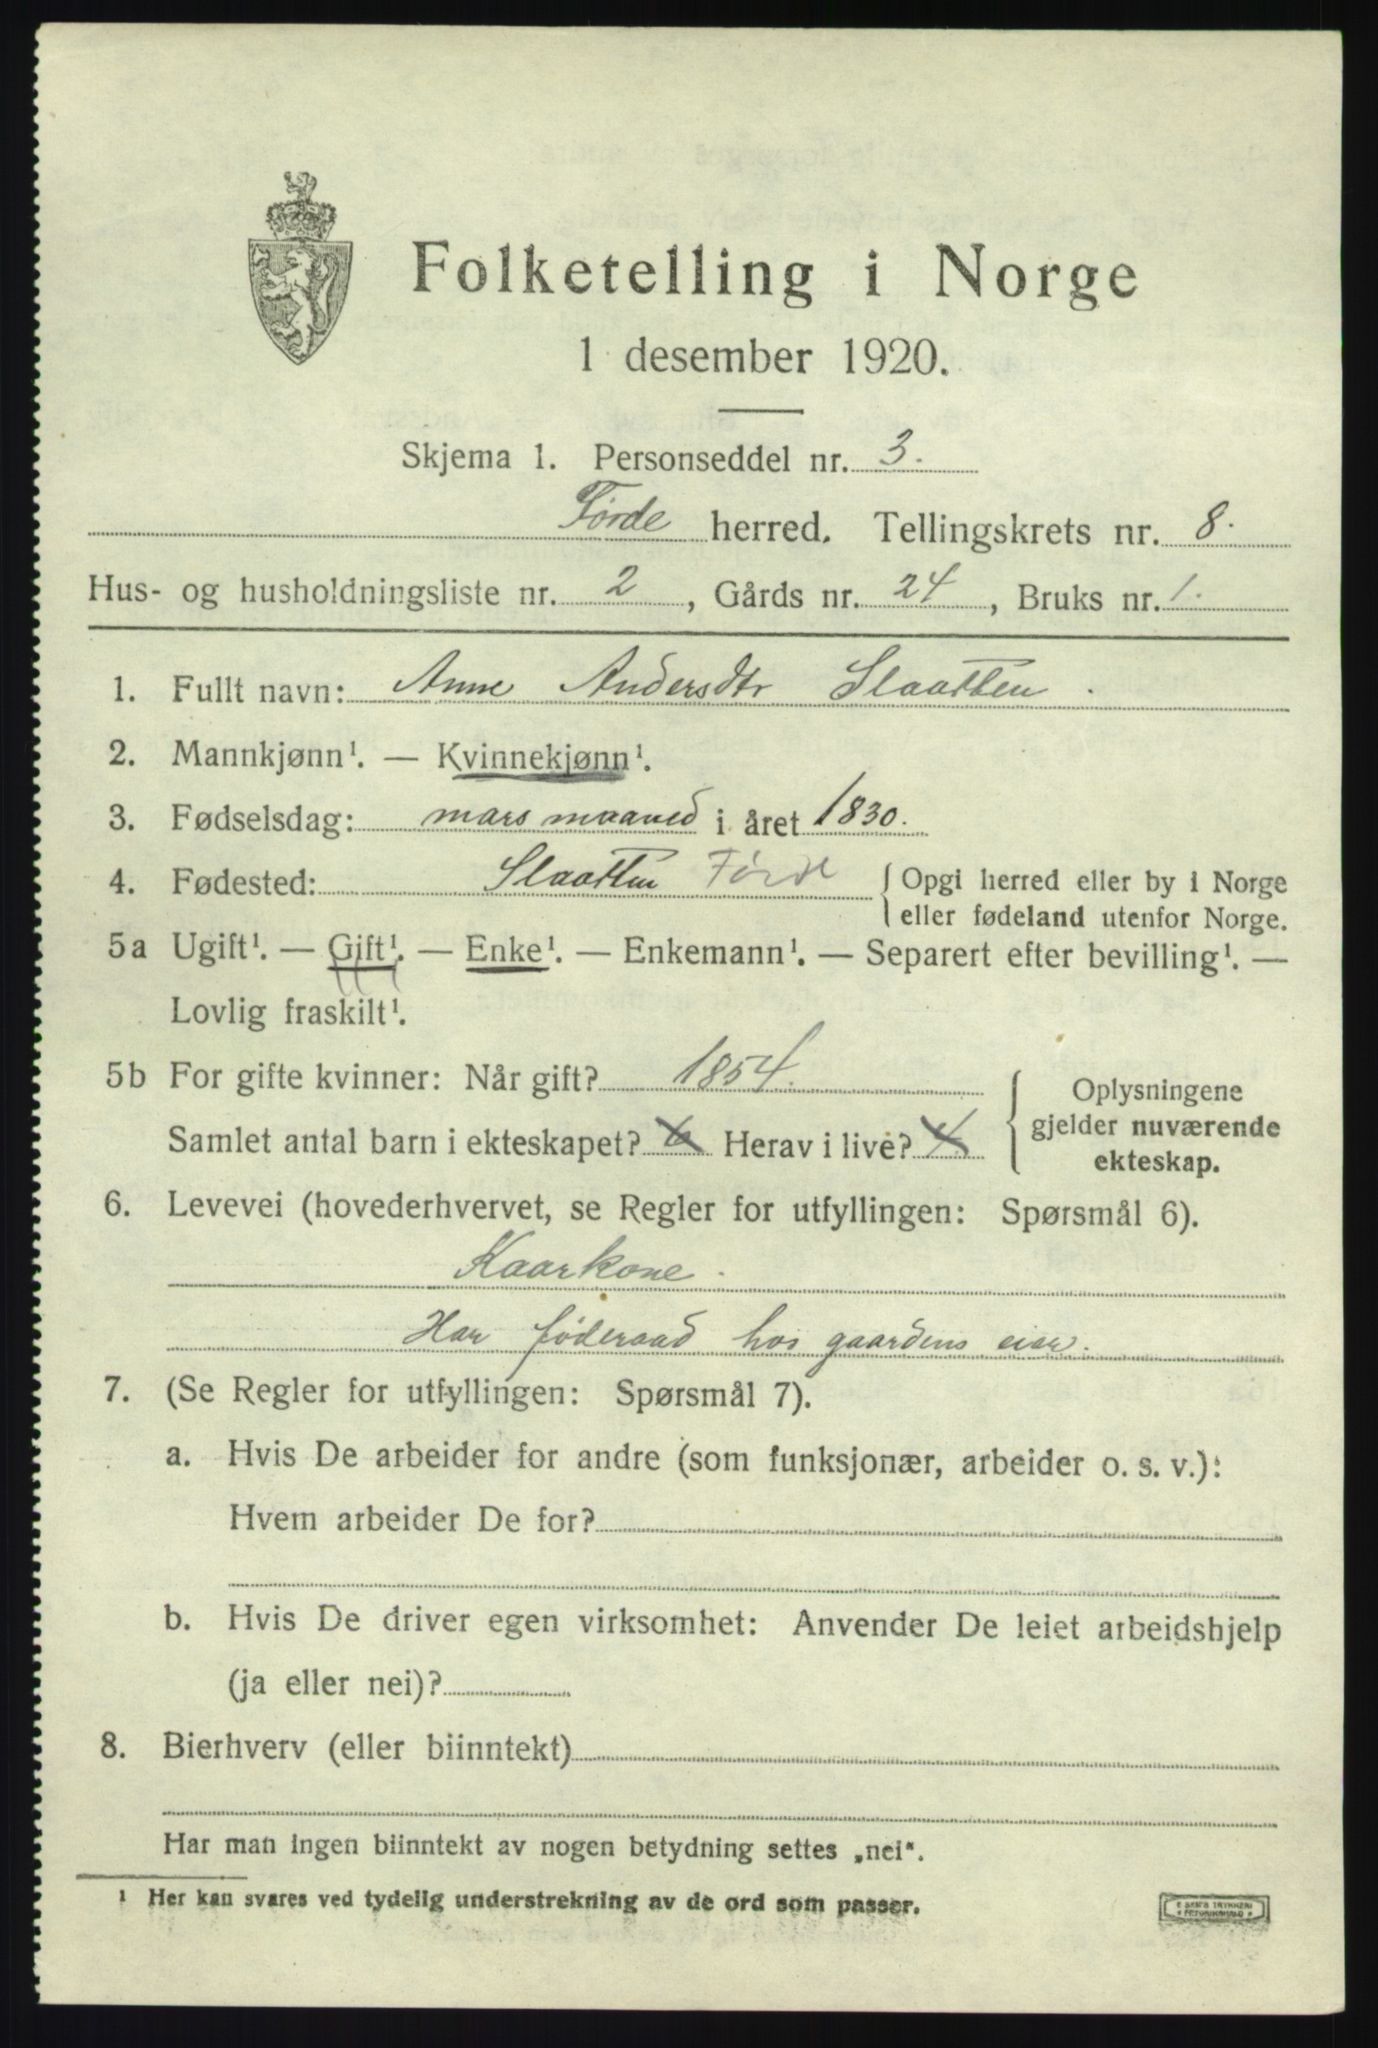 Folketelling i Norge
1 desember 1920.
Skjema 1. Personseddel nr. 3.
Førde herred. Tellingskrets nr. 8.
Hus- og husholdningsliste nr. 2, Gårds nr. 24, Bruks nr. 1.
1. Fullt navn: Anne Andersdtr Slaatten.
2. Mannkjønn¹. — Kvinnekjønn¹.
3. Fødselsdag: mars maaned i året 1830.
4. Fødested: Slaatten Førde { Opgi herred eller by i Norge
eller fødeland utenfor Norge.
5a Ugift¹. — Gift¹. — Enke¹. — Enkemann¹. — Separert efter bevilling¹. —
Lovlig fraskilt¹.
5b For gifte kvinner: Når gift? 1854. { Oplysningene
gjelder nuværende
ekteskap.
Samlet antal barn i ekteskapet? 6 Herav i live? 4
6. Levevei (hovederhvervet, se Regler for utfyllingen: Spørsmål 6).
Kaarkone.
Har føderaad hos gaardens eiar.
7. (Se Regler for utfyllingen: Spørsmål 7).
a. Hvis De arbeider for andre (som funksjonær, arbeider o. s. v.):
Hvem arbeider De for?
b. Hvis De driver egen virksomhet: Anvender De leiet arbeidshjelp
(ja eller nei)?
8. Bierhverv (eller biinntekt)
Har man ingen biinntekt av nogen betydning settes „nei“.
¹ Her kan svares ved tydelig understrekning av de ord som passer.